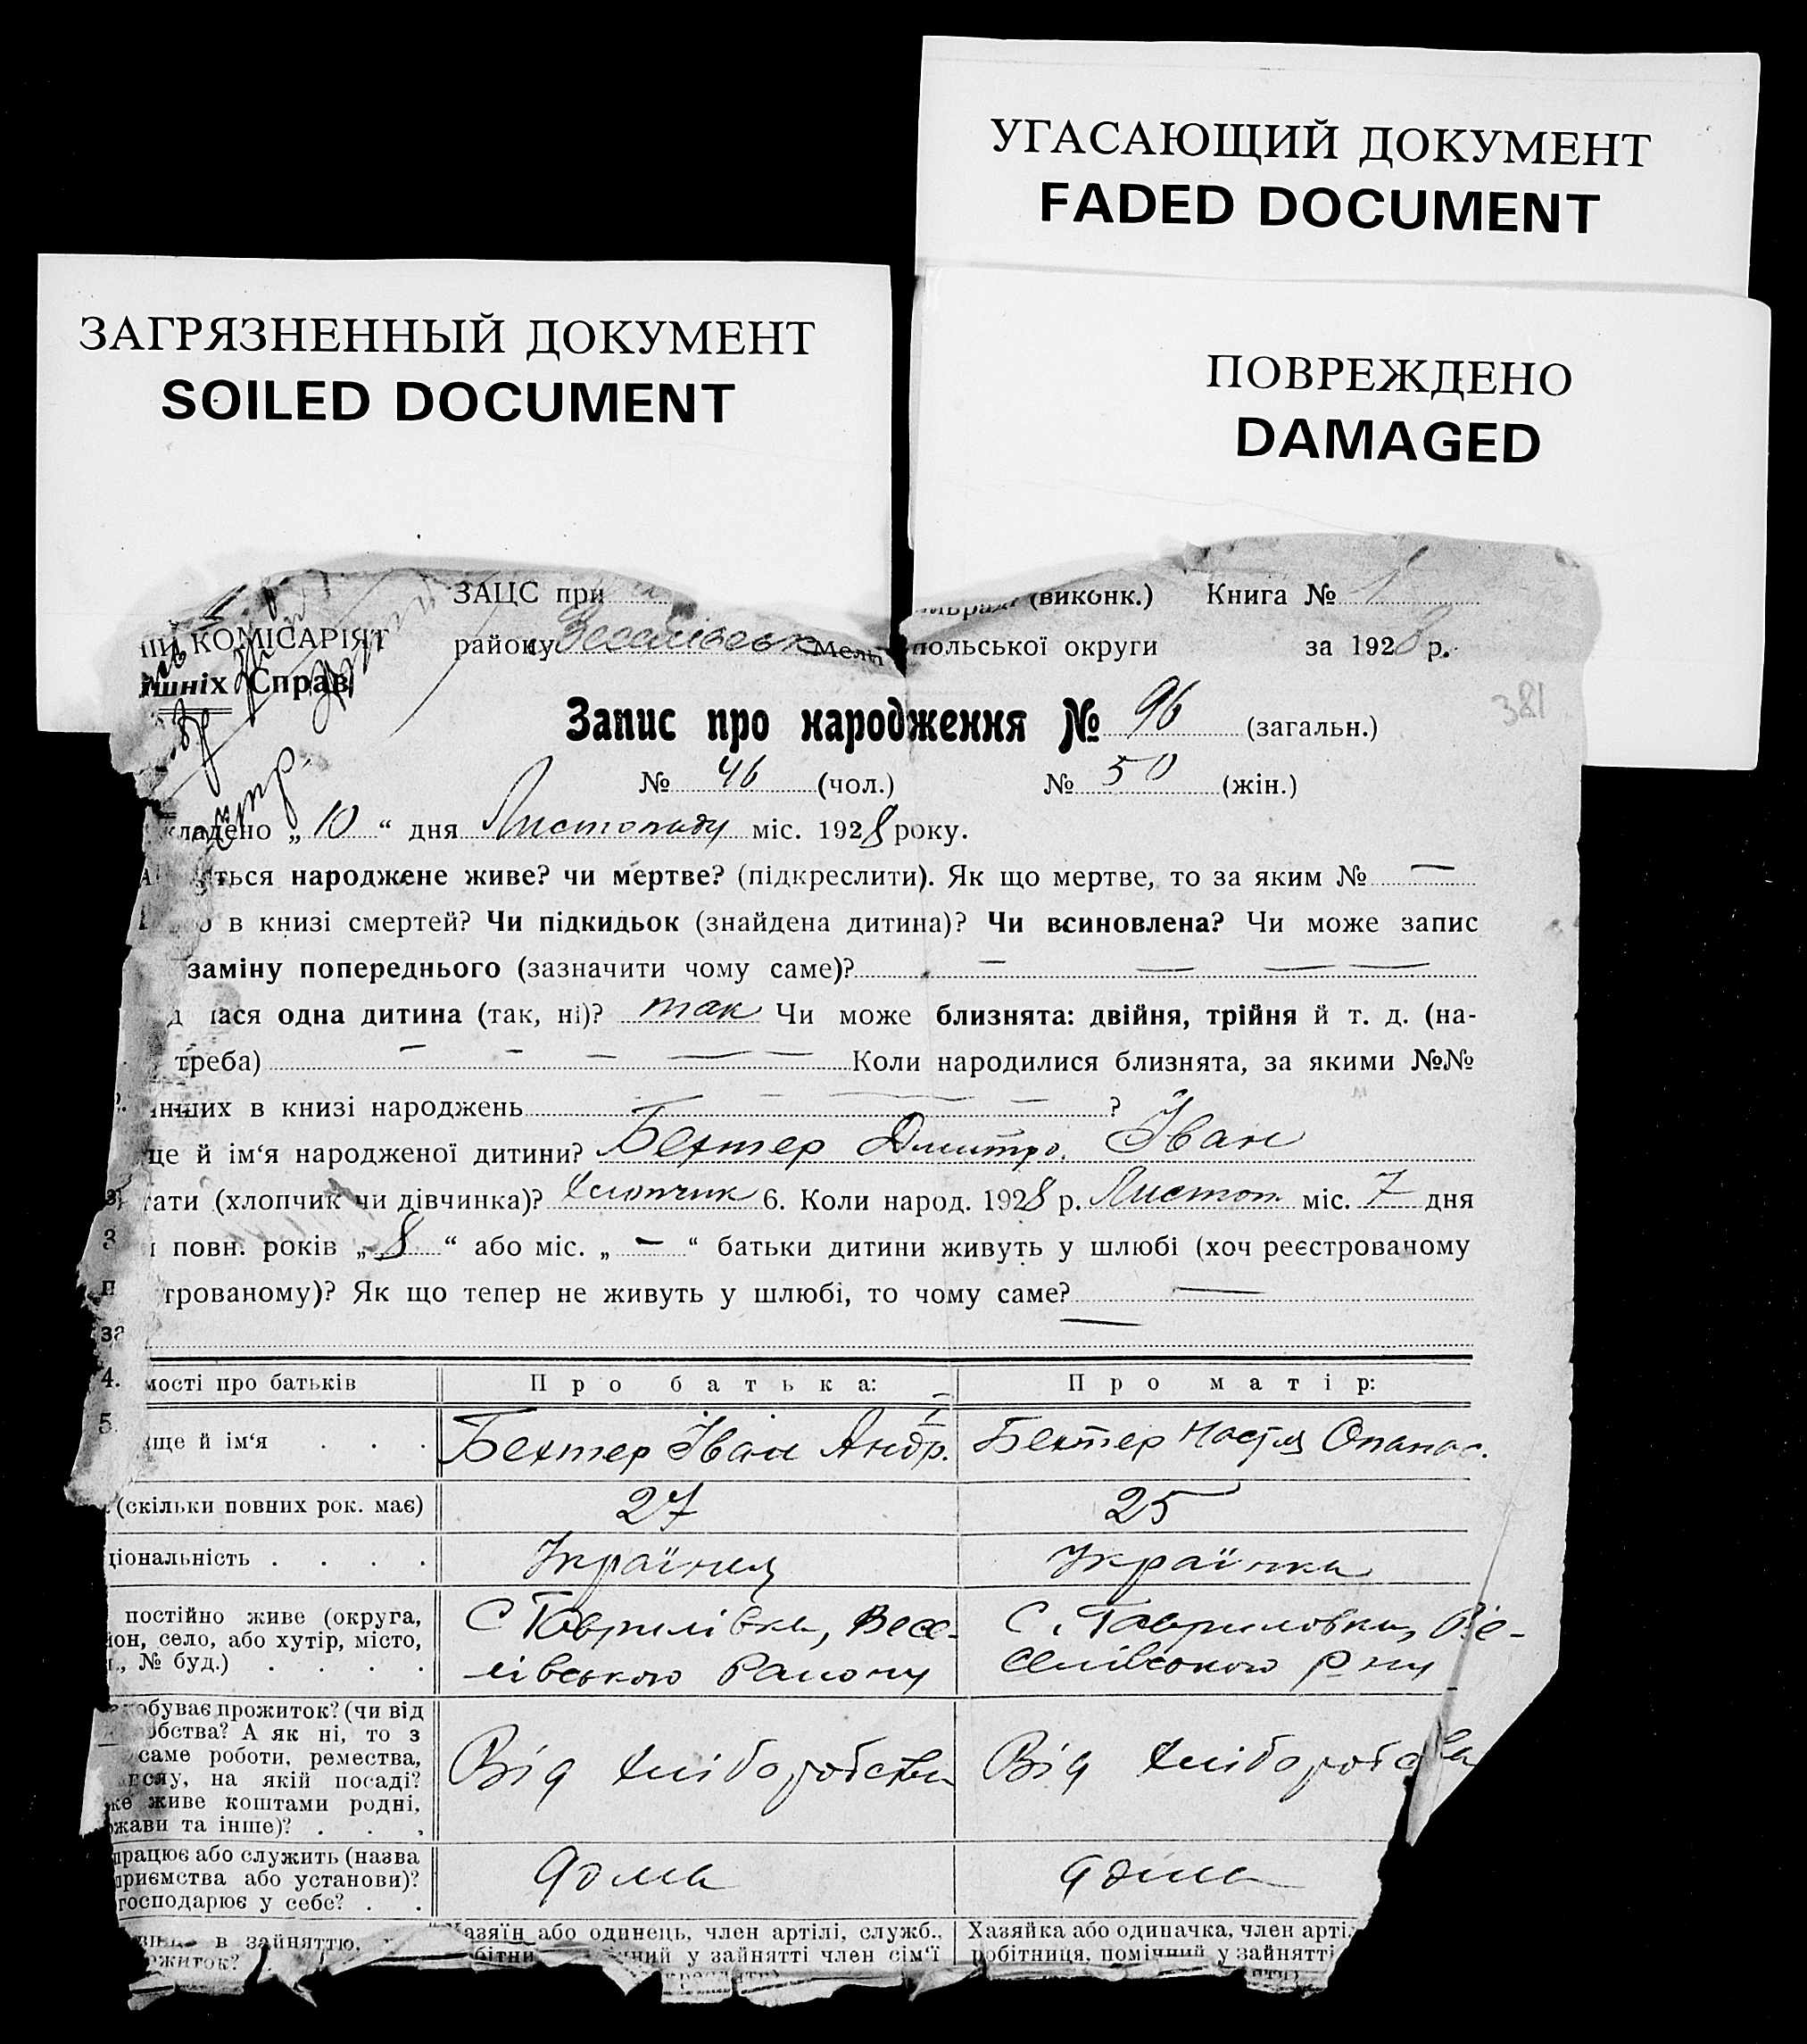 УГАСАЮЩИЙ ДОКУМЕНТ
FADED DOCUMENT
ЗАГРЯЗНЕННЫЙ ДОКУМЕНТ
SOILED DOCUMENT
ПОВРЕЖДЕНО
DAMAGED
ЗАЦС при (виконк.) Книга № 1
ИЙ КОМІСАРІЯТ
району Веселівськ Мелі польської округи за 1928 р.
ішніх Справ
381
Запис про народження № 96 (загальн.)
№ 46 (чол.) № 50 (жін.)
кладено „ 10 “ дня Листопаду міс. 1928 року.
ться народжене живе? чи мертве? (підкреслити). Як що мертве, то за яким № —
в книзі смертей? Чи підкидьок (знайдена дитина)? Чи всиновлена? Чи може запис
заміну попереднього (зазначити чому саме)? — — — —
лася одна дитина (так, ні)? так Чи може близнята: двійня, трійня й т. д. (на-
треба) — — — — — Коли народилися близнята, за якими №№
інших в книзі народжень — — — — ?
ще й ім‘я народженої дитини? Бехтер Дмитро. Іван
тати (хлопчик чи дівчинка)? Хлопчик 6. Коли народ. 1928 р. Листоп міс. 7 дня
повн. років „ 8 “ або міс. „ — “ батьки дитини живуть у шлюбі (хоч реєстрованому
трованому)? Як що тепер не живуть у шлюбі, то чому саме? —
за —
4. мості про батьків Про батька: Про матір:
5. ще й ім‘я . . . Бехтер Іван Андр. Бехтер Настя Опанас.
(скільки повних рок. має) 27 25
ціональність . . . . Українец Українка
постійно живе (округа, С Гаврилівка, Весе- С. Гавриловка, Ве-
йон, село, або хутір, місто, лівського Району селівського р ну
., № буд.) . . . .
обуває прожиток? (чи від
обства? А як ні, то з
саме роботи, ремества, Від хліборобства Від хліборобства
на якій посаді?
живе коштами родні,
жави та інше)? . . .
працює або служить (назва
приємства або установи)? дома дома
господарює у себе? . .
в зайняттю, Хазяїн або одинець, член артілі, служб., Хазяйка або одиначка, член арті
житок? у зайнятті член сім‘ї робітниця, помічний у зайнятті